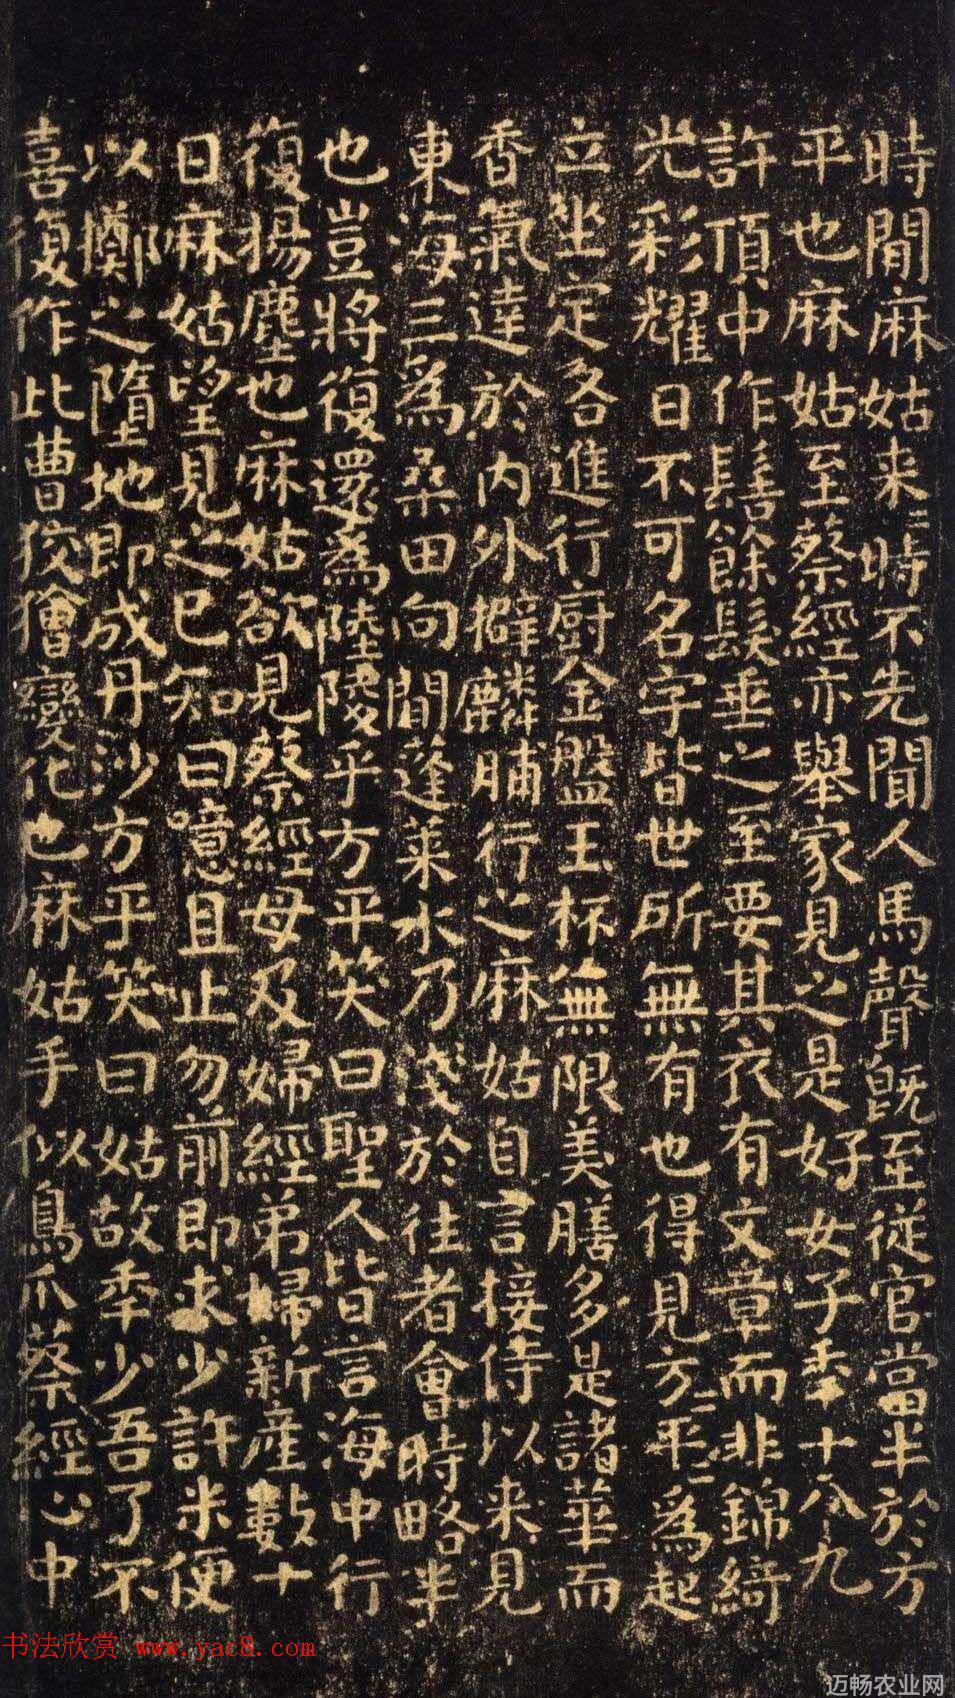 時間麻姑来〻時不先聞人馬聲既至從官當半於方
平也麻姑至蔡經亦舉家見之是好女子年十八九
許頂中作髻餘髮垂之至要其衣有文章而非錦綺
光彩耀日不可名字皆世所無有也得見方〻平〻為起
立坐定各進行廚金盤玉杯無限美膳多是諸華而
香氣達於內外擗麟脯行之麻姑自言接侍以来見
東海三為桑田向間蓬萊水乃淺於往者會時略半
也豈將復還為陸陵乎方平笑曰聖人皆言海中行
復揚塵也麻姑欲見蔡經母及婦經弟婦新產數十
日麻姑望見之已知曰噫且止勿前即求少許米便
以擲之墮地即成丹沙方平笑曰姑故年少吾了不
喜復作此曹狡獪變化也麻姑手似鳥爪蔡經心中
书法欣赏 www.yac8.com
迈畅农业网